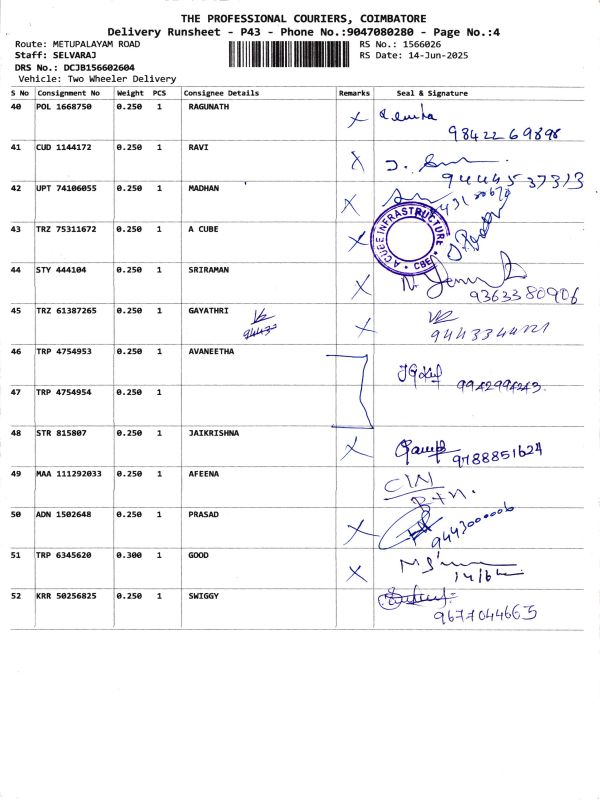 THE PROFESSIONAL COURIERS, COIMBATORE
Delivery Runsheet - P43 - Phone No.:9047080280 - Page No.:4
Route: METUPALAYAM ROAD RS No.: 1566026
Staff: SELVARAJ RS Date: 14-Jun-2025
DRS No.: DCJB156602604
Vehicle: Two Wheeler Delivery
S No Consignment No Weight PCS Consignee Details Remarks Seal & Signature
40 POL 1668750 0.250 1 RAGUNATH X
9842269898
41 CUD 1144172 0.250 1 RAVI X
9444537313
42 UPT 74106055 0.250 1 MADHAN X
43 TRZ 75311672 0.250 1 A CUBE X
A CUBE INFRASTRUCTURE * CBE *
44 STY 444104 0.250 1 SRIRAMAN X
9363380906
45 TRZ 61387265 0.250 1 GAYATHRI X
46 TRP 4754953 0.250 1 AVANEETHA
47 TRP 4754954 0.250 1
48 STR 815807 0.250 1 JAIKRISHNA X
9788851624
49 MAA 111292033 0.250 1 AFEENA
50 ADN 1502648 0.250 1 PRASAD X
9443000006
51 TRP 6345620 0.300 1 GOOD X
52 KRR 50256825 0.250 1 SWIGGY
9677044665